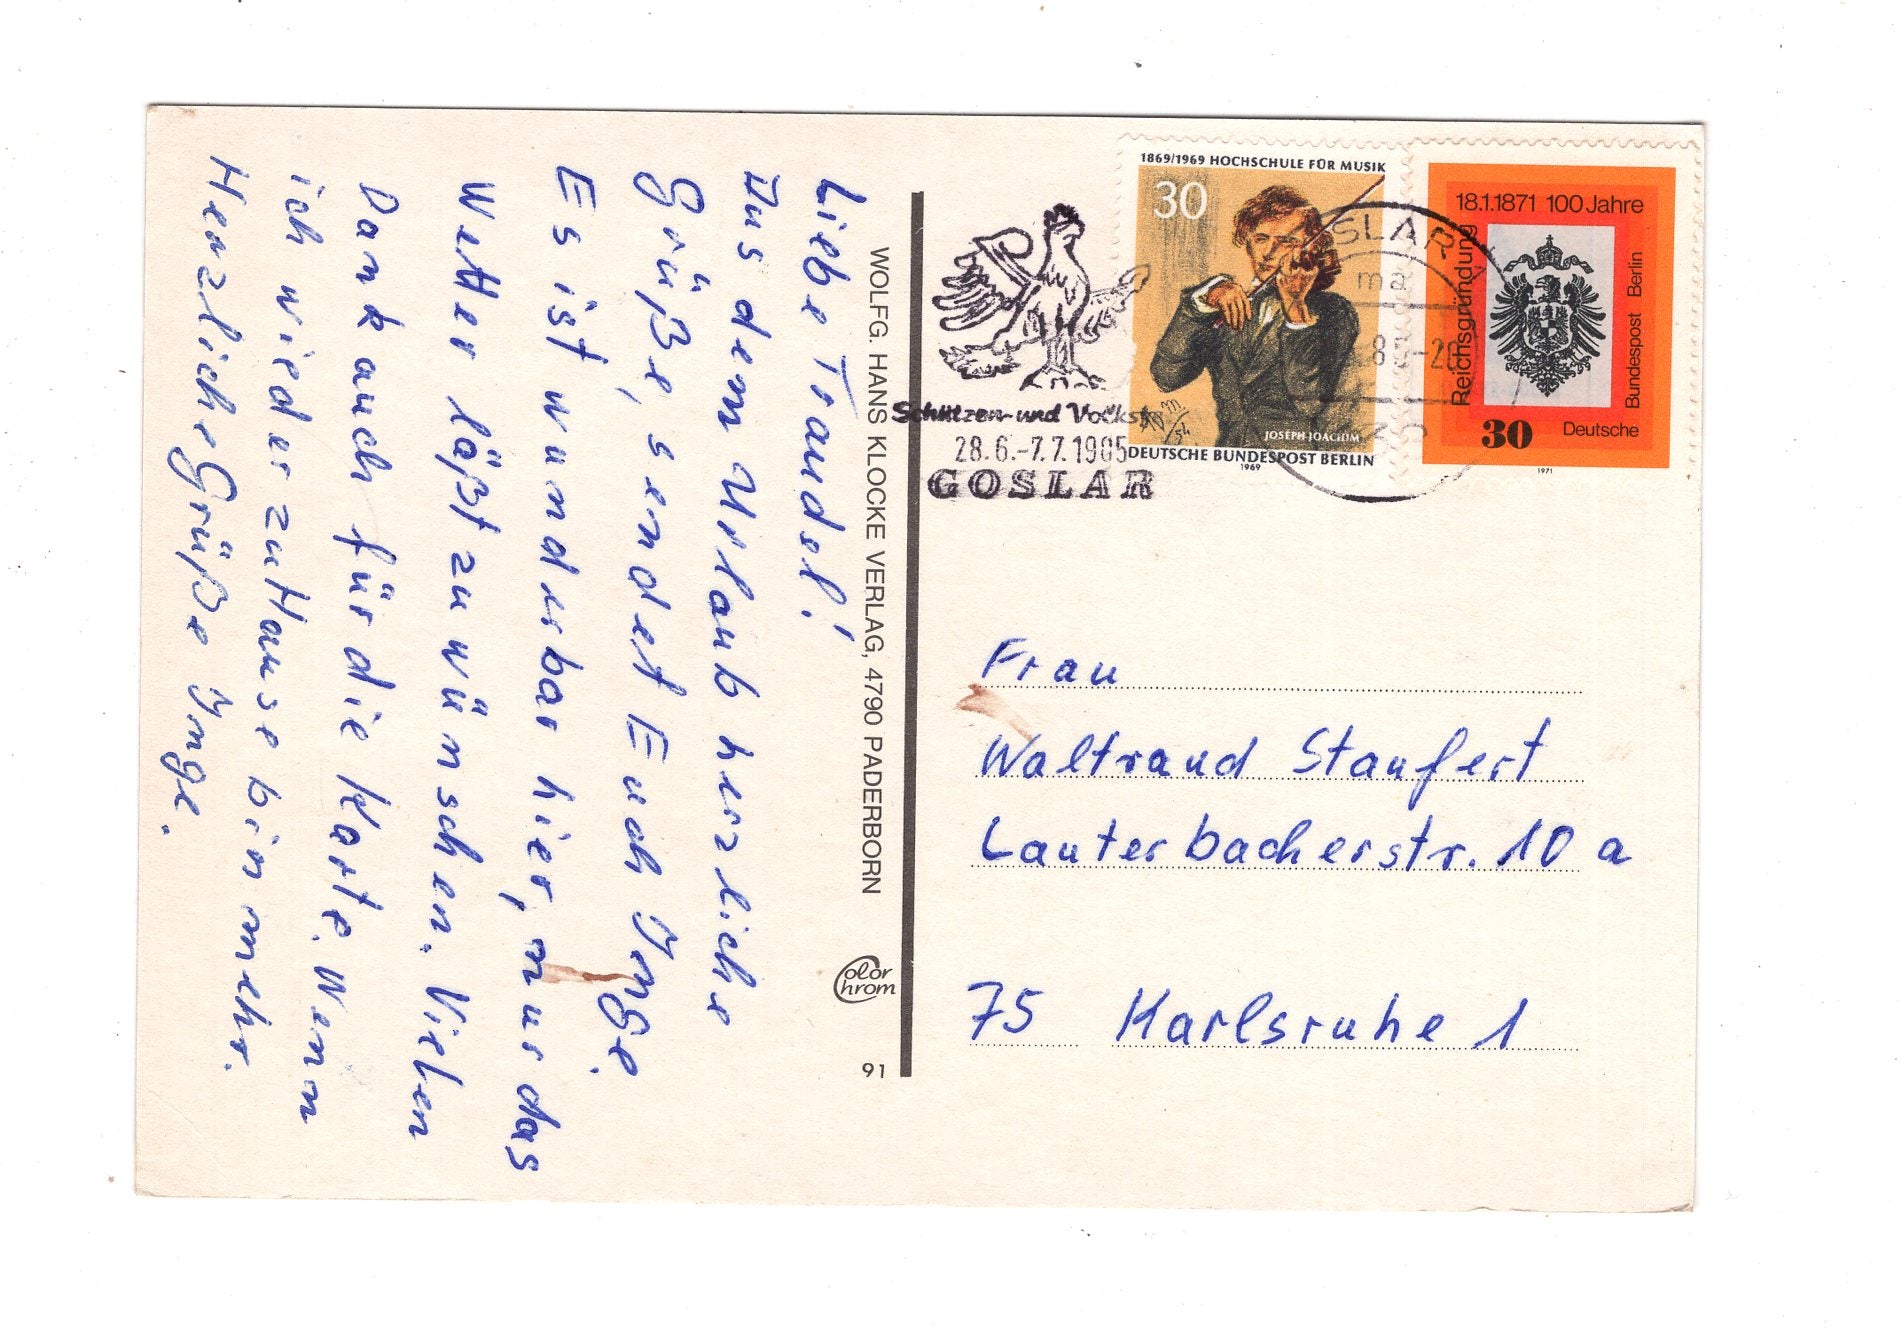 Liebe Traudel!
Aus dem Urlaub herzliche
Grüße, sendet Euch Inge.
Es ist wunderbar hier, nur das
Wetter läßt zu wünschen. Vielen
Dank auch für die Karte. Wenn
ich wieder zu Hause bin mehr.
Herzliche Grüße Inge.
WOLFG. HANS KLOCKE VERLAG, 4790 PADERBORN
Color
Chrom
91
Schützen- und Volks
28.6.-7.7.1985
GOSLAR
1869/1969 HOCHSCHULE FÜR MUSIK
30
JOSEPH JOACHIM
DEUTSCHE BUNDESPOST BERLIN
1969
OSLAR
ma
18.1.1871 100 Jahre
Reichsgründung
Deutsche Bundespost Berlin
30
1971
Frau
Waltraud Staufert
Lauterbacherstr. 10 a
75 Karlsruhe 1